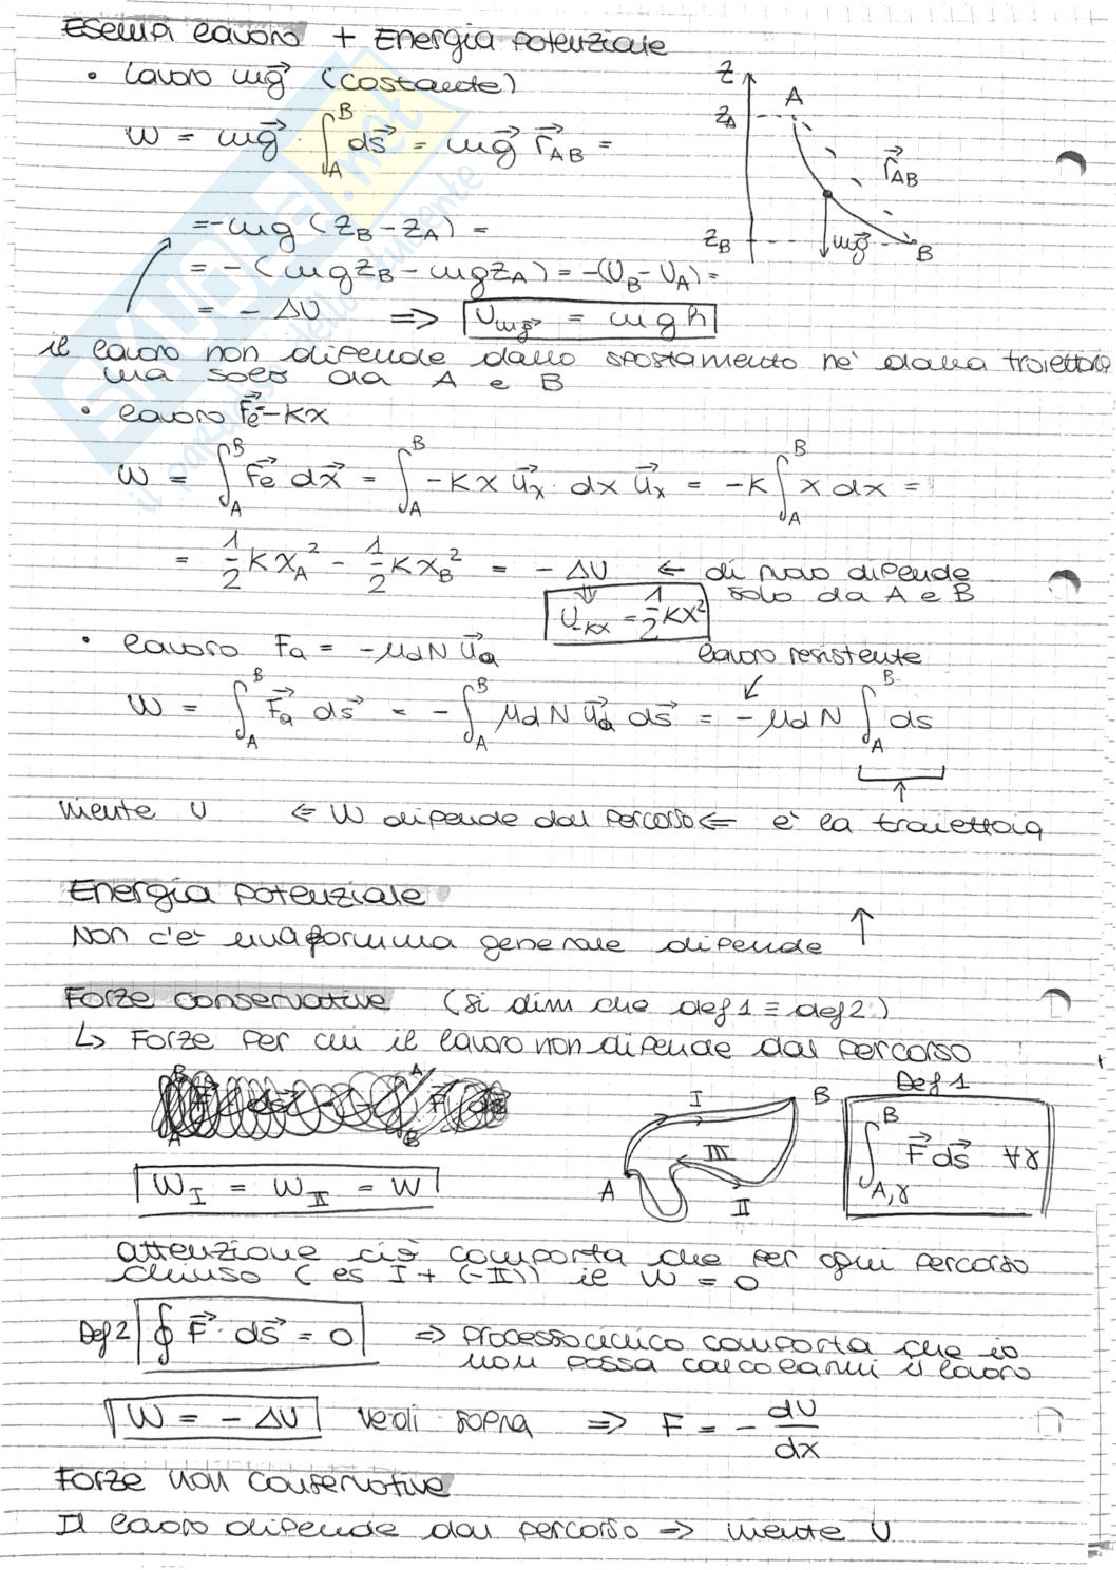 Esempi lavoro + Energia potenziale
• lavoro mg⃗ (costante)
W = mg⃗ · ∫_A^B ds⃗ = mg⃗ r⃗_AB =
= -mg (z_B - z_A) =
= - (mgz_B - mgz_A) = -(U_B - U_A) =
= - ΔU ⇒ U_mg⃗ = mgh
z
A
z_A
r⃗_AB
z_B
mg⃗
B
il lavoro non dipende dallo spostamento ne' dalla traiettoria
ma solo da A e B
• lavoro F⃗e = -Kx
W = ∫_A^B F⃗e dx⃗ = ∫_A^B -Kx u⃗_x · dx u⃗_x = -K ∫_A^B x dx =
= 1/2 Kx_A² - 1/2 Kx_B² = - ΔU ← di nuovo dipende
solo da A e B
⇓
U_-Kx = 1/2 Kx²
• lavoro Fa = -μdN u⃗a
lavoro resistente
W = ∫_A^B F⃗a ds⃗ = - ∫_A^B μdN u⃗a ds⃗ = - μdN ∫_A^B ds
niente U ⇐ W dipende dal percorso ⇐ e' la traiettoria
Energia potenziale
Non c'e' una formula generale dipende ↑
Forze conservative (si dim che def1 ≡ def2)
↳ Forze per cui il lavoro non dipende dal percorso
Def 1
I
B
III
A
II
∫_A,γ^B F⃗ ds⃗ ∀γ
W_I = W_II = W
attenzione ciò comporta che per ogni percorso
chiuso (es I + (-II)) il W = 0
Def2 ∮ F⃗ · ds⃗ = 0 ⇒ processo ciclico comporta che io
non possa calcolarmi il lavoro
W = - ΔU vedi sopra ⇒ F = - dU/dx
Forze non conservative
Il lavoro dipende dal percorso ⇒ niente U